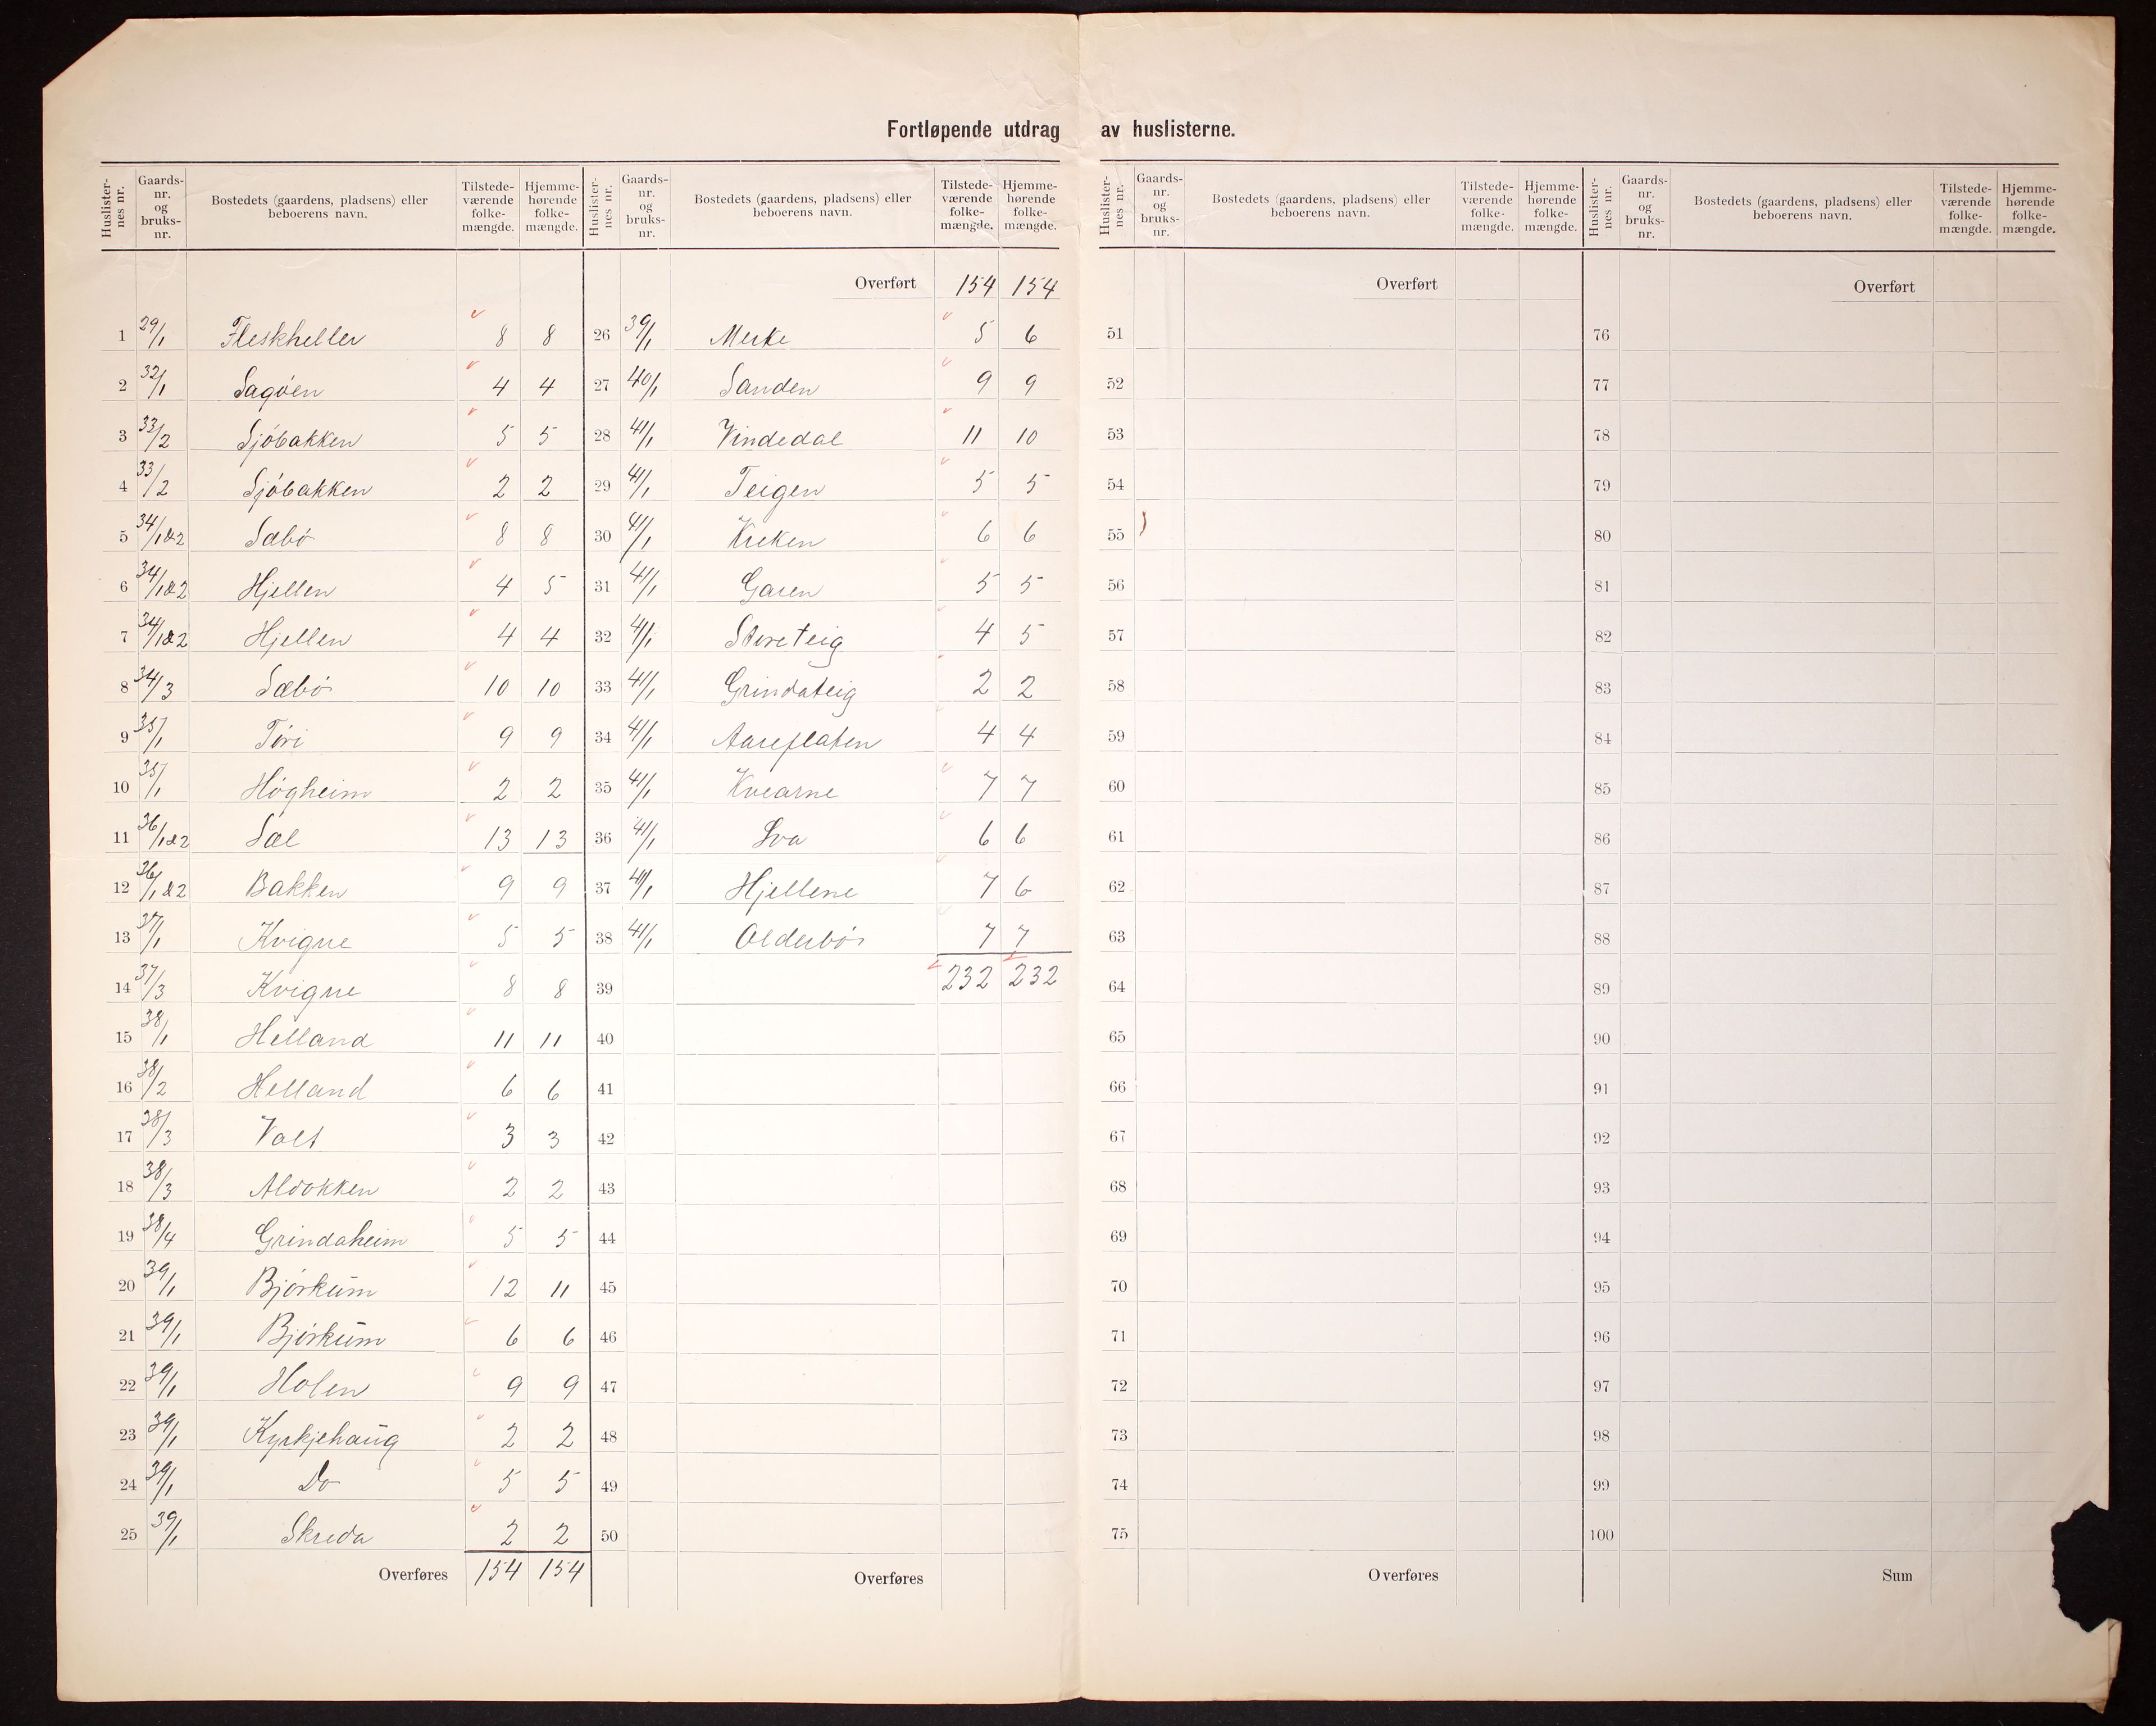 Fortløpende utdrag av huslisterne.
Huslisternes nr. | Gaards-nr. og bruks-nr. | Bostedets (gaardens, pladsens) eller beboerens navn. | Tilstedeværende folkemængde. | Hjemmehørende folkemængde.
1 29/1 Fleskheller 8 8
2 32/1 Sagøen 4 4
3 33/2 Sjøbakken 5 5
4 33/2 Sjøbakken 2 2
5 34/1&2 Sæbø 8 8
6 34/1&2 Hjellen 4 5
7 34/1&2 Hjellen 4 4
8 34/3 Sæbø 10 10
9 35/1 Tøri 9 9
10 35/1 Høgheim 2 2
11 36/1&2 Sæl 13 13
12 36/1&2 Bakken 9 9
13 37/1 Kvigne 5 5
14 37/3 Kvigne 8 8
15 38/1 Helland 11 11
16 38/2 Helland 6 6
17 38/3 Valt 3 3
18 38/3 Aldokken 2 2
19 38/4 Grindaheim 5 5
20 39/1 Bjørkum 12 11
21 39/1 Bjørkum 6 6
22 39/1 Holen 9 9
23 39/1 Kyrkjehaug 2 2
24 39/1 Do 5 5
25 39/1 Skreda 2 2
Overføres 154 154
Huslisternes nr. | Gaards-nr. og bruks-nr. | Bostedets (gaardens, pladsens) eller beboerens navn. | Tilstedeværende folkemængde. | Hjemmehørende folkemængde.
Overført 154 154
26 39/1 Merke 5 6
27 40/1 Sanden 9 9
28 41/1 Vindedal 11 10
29 41/1 Teigen 5 5
30 41/1 Kreken 6 6
31 41/1 Garen 5 5
32 41/1 Storeteig 4 5
33 41/1 Grindateig 2 2
34 41/1 Aareflaten 4 4
35 41/1 Kvearne 7 7
36 41/1 Sva 6 6
37 41/1 Hjellene 7 6
38 41/1 Olderbø 7 7
39 232 232
40
41
42
43
44
45
46
47
48
49
50
Overføres
Huslisternes nr. | Gaards-nr. og bruks-nr. | Bostedets (gaardens, pladsens) eller beboerens navn. | Tilstedeværende folkemængde. | Hjemmehørende folkemængde.
Overført
51
52
53
54
55
56
57
58
59
60
61
62
63
64
65
66
67
68
69
70
71
72
73
74
75
Overføres
Huslisternes nr. | Gaards-nr. og bruks-nr. | Bostedets (gaardens, pladsens) eller beboerens navn. | Tilstedeværende folkemængde. | Hjemmehørende folkemængde.
Overført
76
77
78
79
80
81
82
83
84
85
86
87
88
89
90
91
92
93
94
95
96
97
98
99
100
Sum